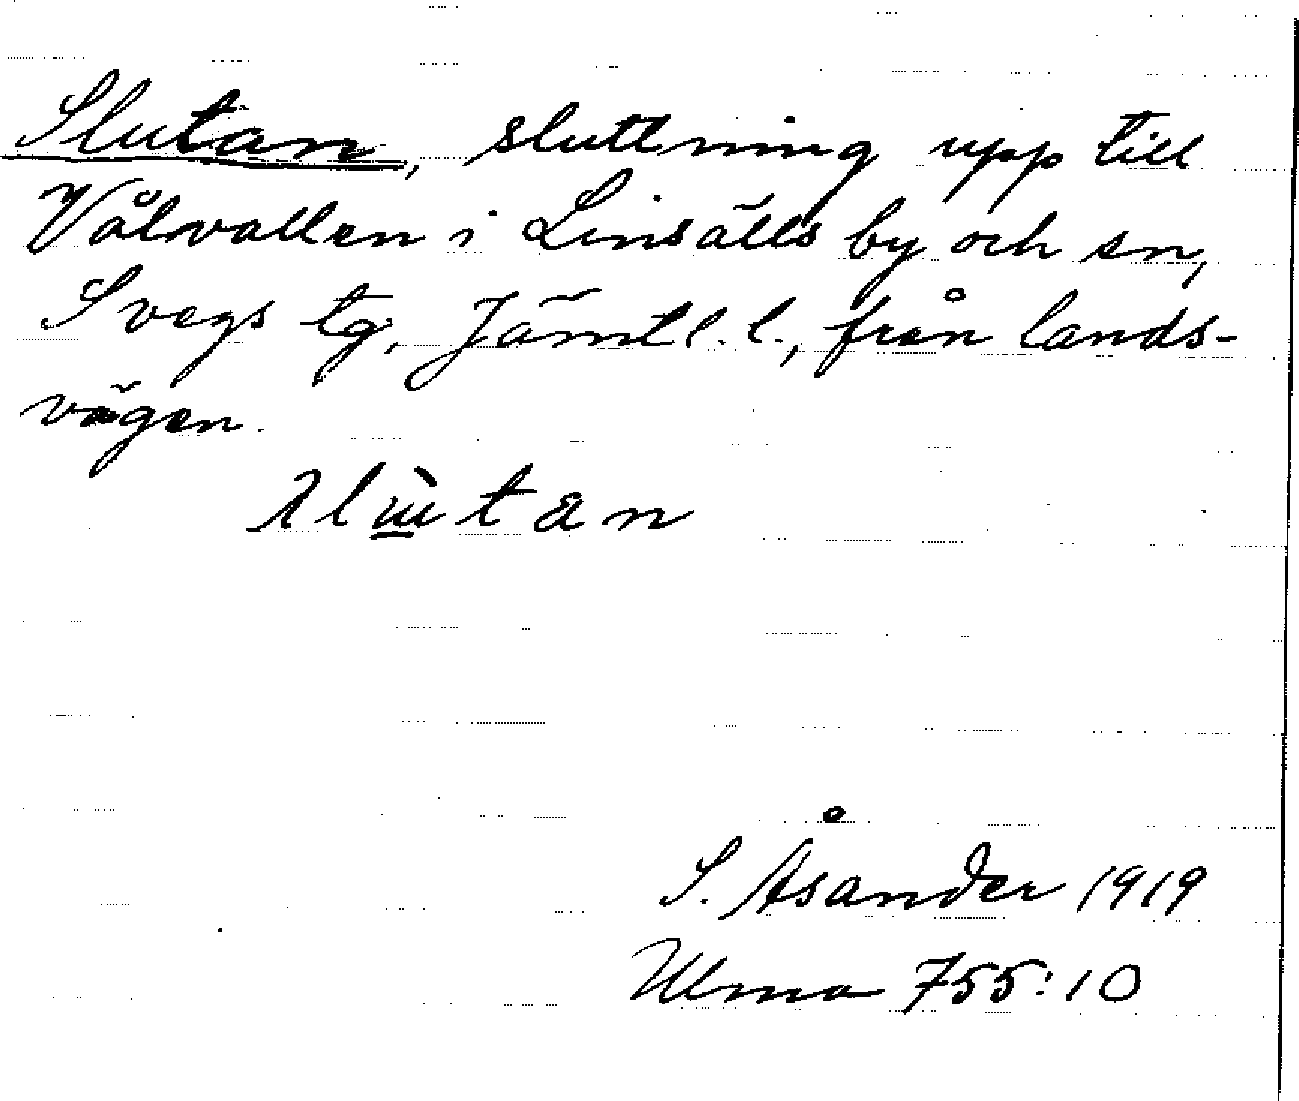 Slutan, sluttning upp till
Vålvallen i Linsälls by och sn,
Svegs tg, Jämtl. l., från lands-
vägen.
S. Åsander 1919
Ulma 755:10